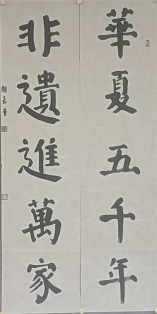 華夏五千年
非遺進萬家